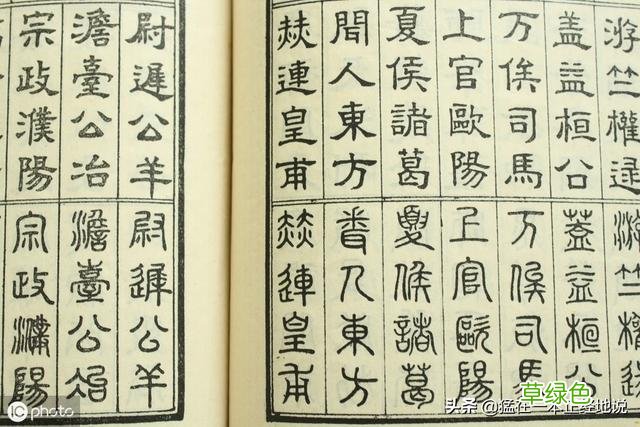 游竺權逯
盖益桓公
万俟司馬
上官歐陽
夏侯諸葛
聞人東方
赫連皇甫
游竺權逯
蓋益桓公
万俟司馬
上官歐陽
夏侯諸葛
聞人東方
赫連皇甫
尉遲公羊
澹臺公冶
宗政濮陽
尉遲公羊
澹臺公冶
宗政濮陽
草绿色
iC photo
头条 @猛在一本正经地说